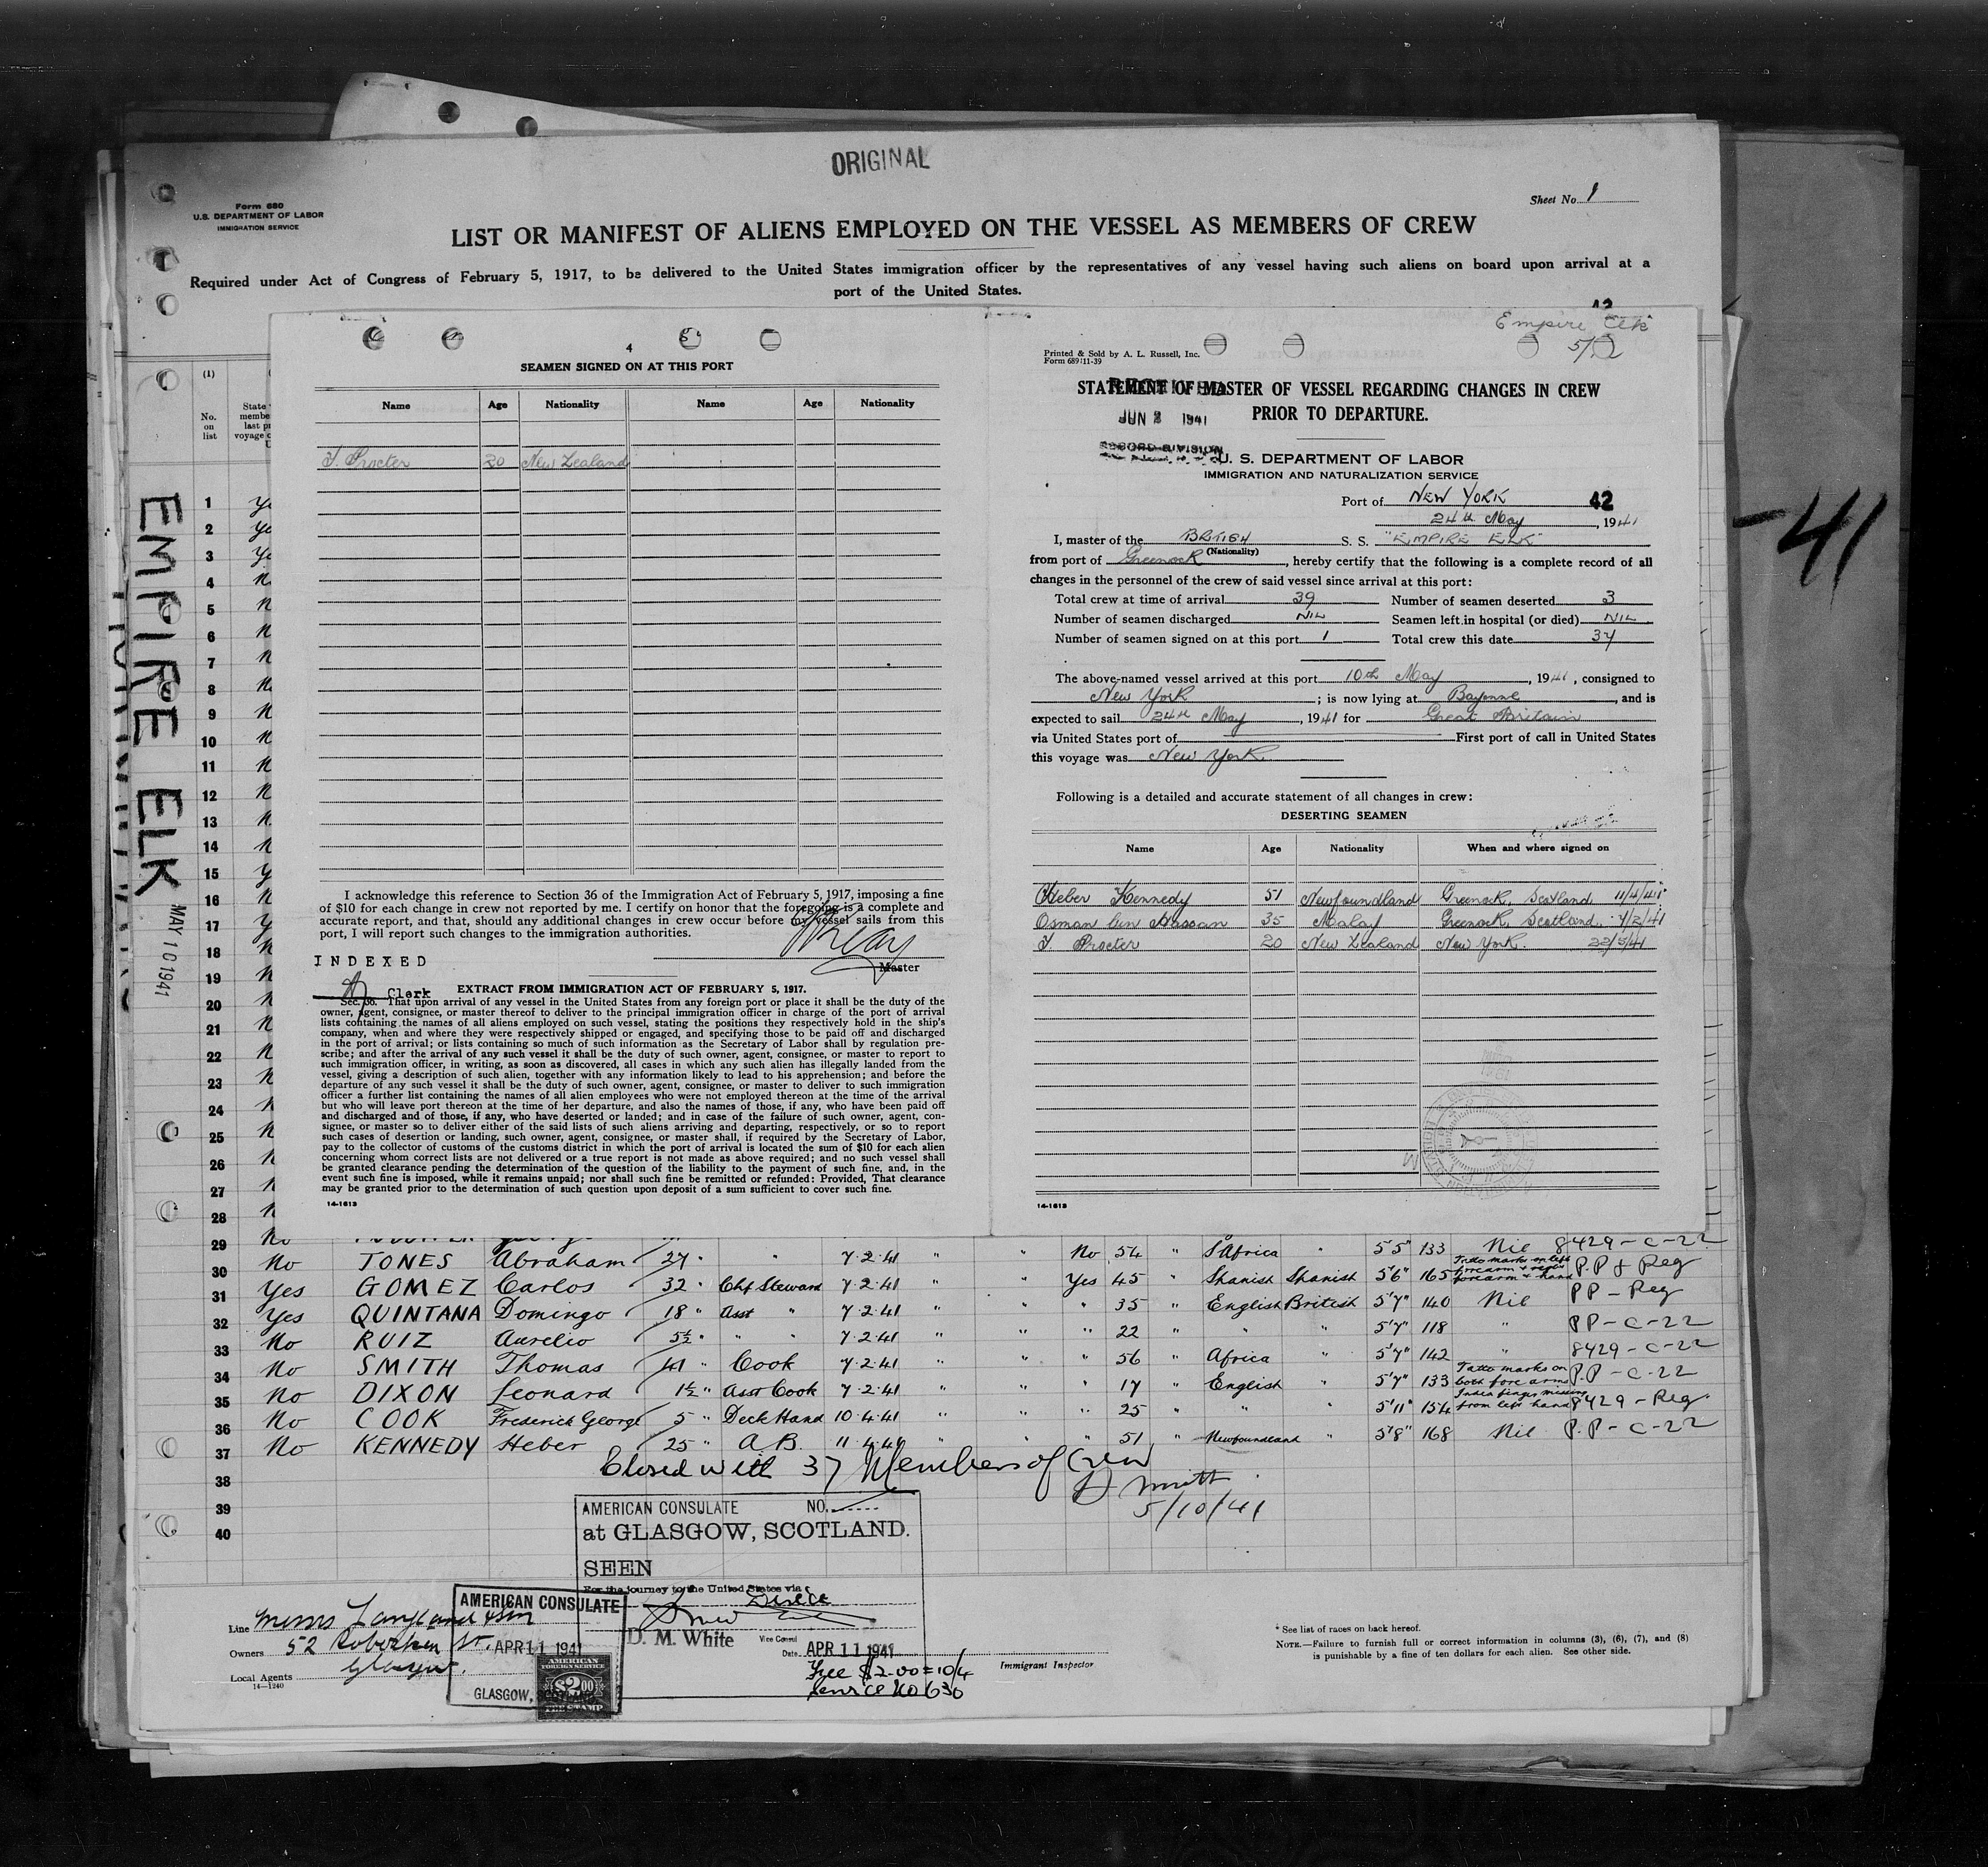 ORIGINAL
Form 680
U.S. DEPARTMENT OF LABOR
IMMIGRATION SERVICE
Sheet No. 1
LIST OR MANIFEST OF ALIENS EMPLOYED ON THE VESSEL AS MEMBERS OF CREW
Required under Act of Congress of February 5, 1917, to be delivered to the United States immigration officer by the representatives of any vessel having such aliens on board upon arrival at a
port of the United States.
42
4
SEAMEN SIGNED ON AT THIS PORT
Name Age Nationality Name Age Nationality
T. Procter 20 New Zealand
I acknowledge this reference to Section 36 of the Immigration Act of February 5, 1917, imposing a fine
of $10 for each change in crew not reported by me. I certify on honor that the foregoing is a complete and
accurate report, and that, should any additional changes in crew occur before my vessel sails from this
port, I will report such changes to the immigration authorities.
INDEXED
Master
Clerk
EXTRACT FROM IMMIGRATION ACT OF FEBRUARY 5, 1917.
Sec. 36. That upon arrival of any vessel in the United States from any foreign port or place it shall be the duty of the
owner, agent, consignee, or master thereof to deliver to the principal immigration officer in charge of the port of arrival
lists containing the names of all aliens employed on such vessel, stating the positions they respectively hold in the ship's
company, when and where they were respectively shipped or engaged, and specifying those to be paid off and discharged
in the port of arrival; or lists containing so much of such information as the Secretary of Labor shall by regulation pre-
scribe; and after the arrival of any such vessel it shall be the duty of such owner, agent, consignee, or master to report to
such immigration officer, in writing, as soon as discovered, all cases in which any such alien has illegally landed from the
vessel, giving a description of such alien, together with any information likely to lead to his apprehension; and before the
departure of any such vessel it shall be the duty of such owner, agent, consignee, or master to deliver to such immigration
officer a further list containing the names of all alien employees who were not employed thereon at the time of the arrival
but who will leave port thereon at the time of her departure, and also the names of those, if any, who have been paid off
and discharged and of those, if any, who have deserted or landed; and in case of the failure of such owner, agent, con-
signee, or master so to deliver either of the said lists of such aliens arriving and departing, respectively, or so to report
such cases of desertion or landing, such owner, agent, consignee, or master shall, if required by the Secretary of Labor,
pay to the collector of customs of the customs district in which the port of arrival is located the sum of $10 for each alien
concerning whom correct lists are not delivered or a true report is not made as above required; and no such vessel shall
be granted clearance pending the determination of the question of the liability to the payment of such fine, and, in the
event such fine is imposed, while it remains unpaid; nor shall such fine be remitted or refunded: Provided, That clearance
may be granted prior to the determination of such question upon deposit of a sum sufficient to cover such fine.
14-1613
Empire Elk
Printed & Sold by A. L. Russell, Inc.
Form 689:11-39
STATEMENT OF MASTER OF VESSEL REGARDING CHANGES IN CREW
PRIOR TO DEPARTURE.
RECEIVED
JUN 2 1941
RECORD DIVISION
U. S. DEPARTMENT OF LABOR
IMMIGRATION AND NATURALIZATION SERVICE
Port of NEW YORK 42
24th May, 1941
I, master of the BRITISH S. S. "EMPIRE ELK"
(Nationality)
from port of Greenock, hereby certify that the following is a complete record of all
changes in the personnel of the crew of said vessel since arrival at this port:
Total crew at time of arrival 39 Number of seamen deserted 3
Number of seamen discharged NIL Seamen left in hospital (or died) NIL
Number of seamen signed on at this port 1 Total crew this date 37
The above-named vessel arrived at this port 10th May, 1941, consigned to
New York; is now lying at Bayonne, and is
expected to sail 24th May, 1941 for Great Britain
via United States port of First port of call in United States
this voyage was New York.
Following is a detailed and accurate statement of all changes in crew:
DESERTING SEAMEN
Name Age Nationality When and where signed on
Heber Kennedy 51 Newfoundland Greenock, Scotland 11/4/41
Osman bin Hassan 35 Malay Greenock, Scotland. 7/2/41
T. Procter 20 New Zealand New York. 22/5/41
14-1613
-41
EMPIRE ELK
MAY 10 1941
(1)
No.
on
list
1
2
3
4
5
6
7
8
9
10
11
12
13
14
15
16
17
18
19
20
21
22
23
24
25
26
27
28
29
30 No JONES Abraham 27 " " 7.2.41 " " No 54 " S Africa " 5'5" 133 Nil 8429-C-22
31 Yes GOMEZ Carlos 32 " Chf Steward 7.2.41 " " Yes 45 " Spanish Spanish 5'6" 165 Tatto marks on left forearm & right forearm & hand PP & Reg
32 Yes QUINTANA Domingo 18 " Asst " 7.2.41 " " " 35 " English British 5'7" 140 Nil PP - Reg
33 No RUIZ Aurelio 5½ " " " 7.2.41 " " " 22 " " " 5'7" 118 " PP-C-22
34 No SMITH Thomas 41 " Cook 7.2.41 " " " 56 " Africa " 5'7" 142 " 8429-C-22
35 No DIXON Leonard 1½ " Asst Cook 7.2.41 " " " 17 " English " 5'7" 133 Tatto marks on both fore arms P.P-C-22
36 No COOK Frederick George 5 " Deck Hand 10.4.41 " " " 25 " " " 5'11" 154 Index finger missing from left hand 8429-Reg
37 No KENNEDY Heber 25 " A.B. 11.4.41 " " " 51 " Newfoundland " 5'8" 168 Nil P.P-C-22
38
39
40
Closed with 37 Members of Crew
5/10/41
AMERICAN CONSULATE NO.
at GLASGOW, SCOTLAND.
SEEN
For the journey to the United States via
D. M. White Vice Consul
Date APR 11 1941
Fee $2.00=10/4
Service No 630
AMERICAN CONSULATE
APR 11 1941
GLASGOW, SCOTLAND
AMERICAN
FOREIGN SERVICE
$2.00
FEE STAMP
Line Messrs
Owners 52 Robertson St.
Local Agents Glasgow.
14-1240
Immigrant Inspector
* See list of races on back hereof.
NOTE.—Failure to furnish full or correct information in columns (3), (6), (7), and (8)
is punishable by a fine of ten dollars for each alien. See other side.